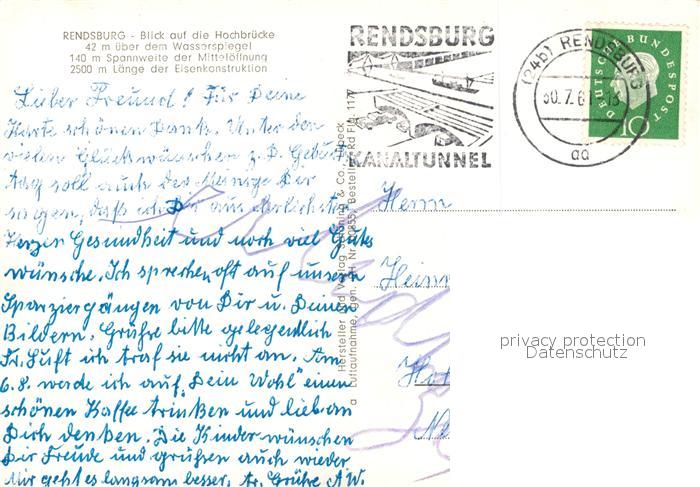 RENDSBURG - Blick auf die Hochbrücke
42 m über dem Wasserspiegel
140 m Spannweite der Mittelöffnung
2500 m Länge der Eisenkonstruktion
RENDSBURG
KANALTUNNEL
(24b) RENDSBURG
30.7.61
aa
DEUTSCHE BUNDESPOST
10
Lieber Freund! Für Deine
Karte schönen Dank. Unter den
vielen Glückwünschen z. D. Geburts
tag soll auch der Meinige Dir
sagen, daß ich Dir aus
Herzen Gesundheit und noch viel Gutes
wünsche. Ich sprechen oft auf unseren
Sparziergängen von Dir u. Deinen
Bildern. Grüße bitte gelegentlich
Fr. Luft ich traf sie nicht an. Am
6.8. werde ich auf "Dein Wohl" einen
schönen Kaffee trinken und lieb an
Dich denken. Die Kinder wünschen
Dir Freude und grüßen auch wieder
Mir geht es langsam besser. Grüße A.W.
Hersteller und Verlag Schöning & Co., Lübeck
Luftaufnahme
Herrn
privacy protection
Datenschutz